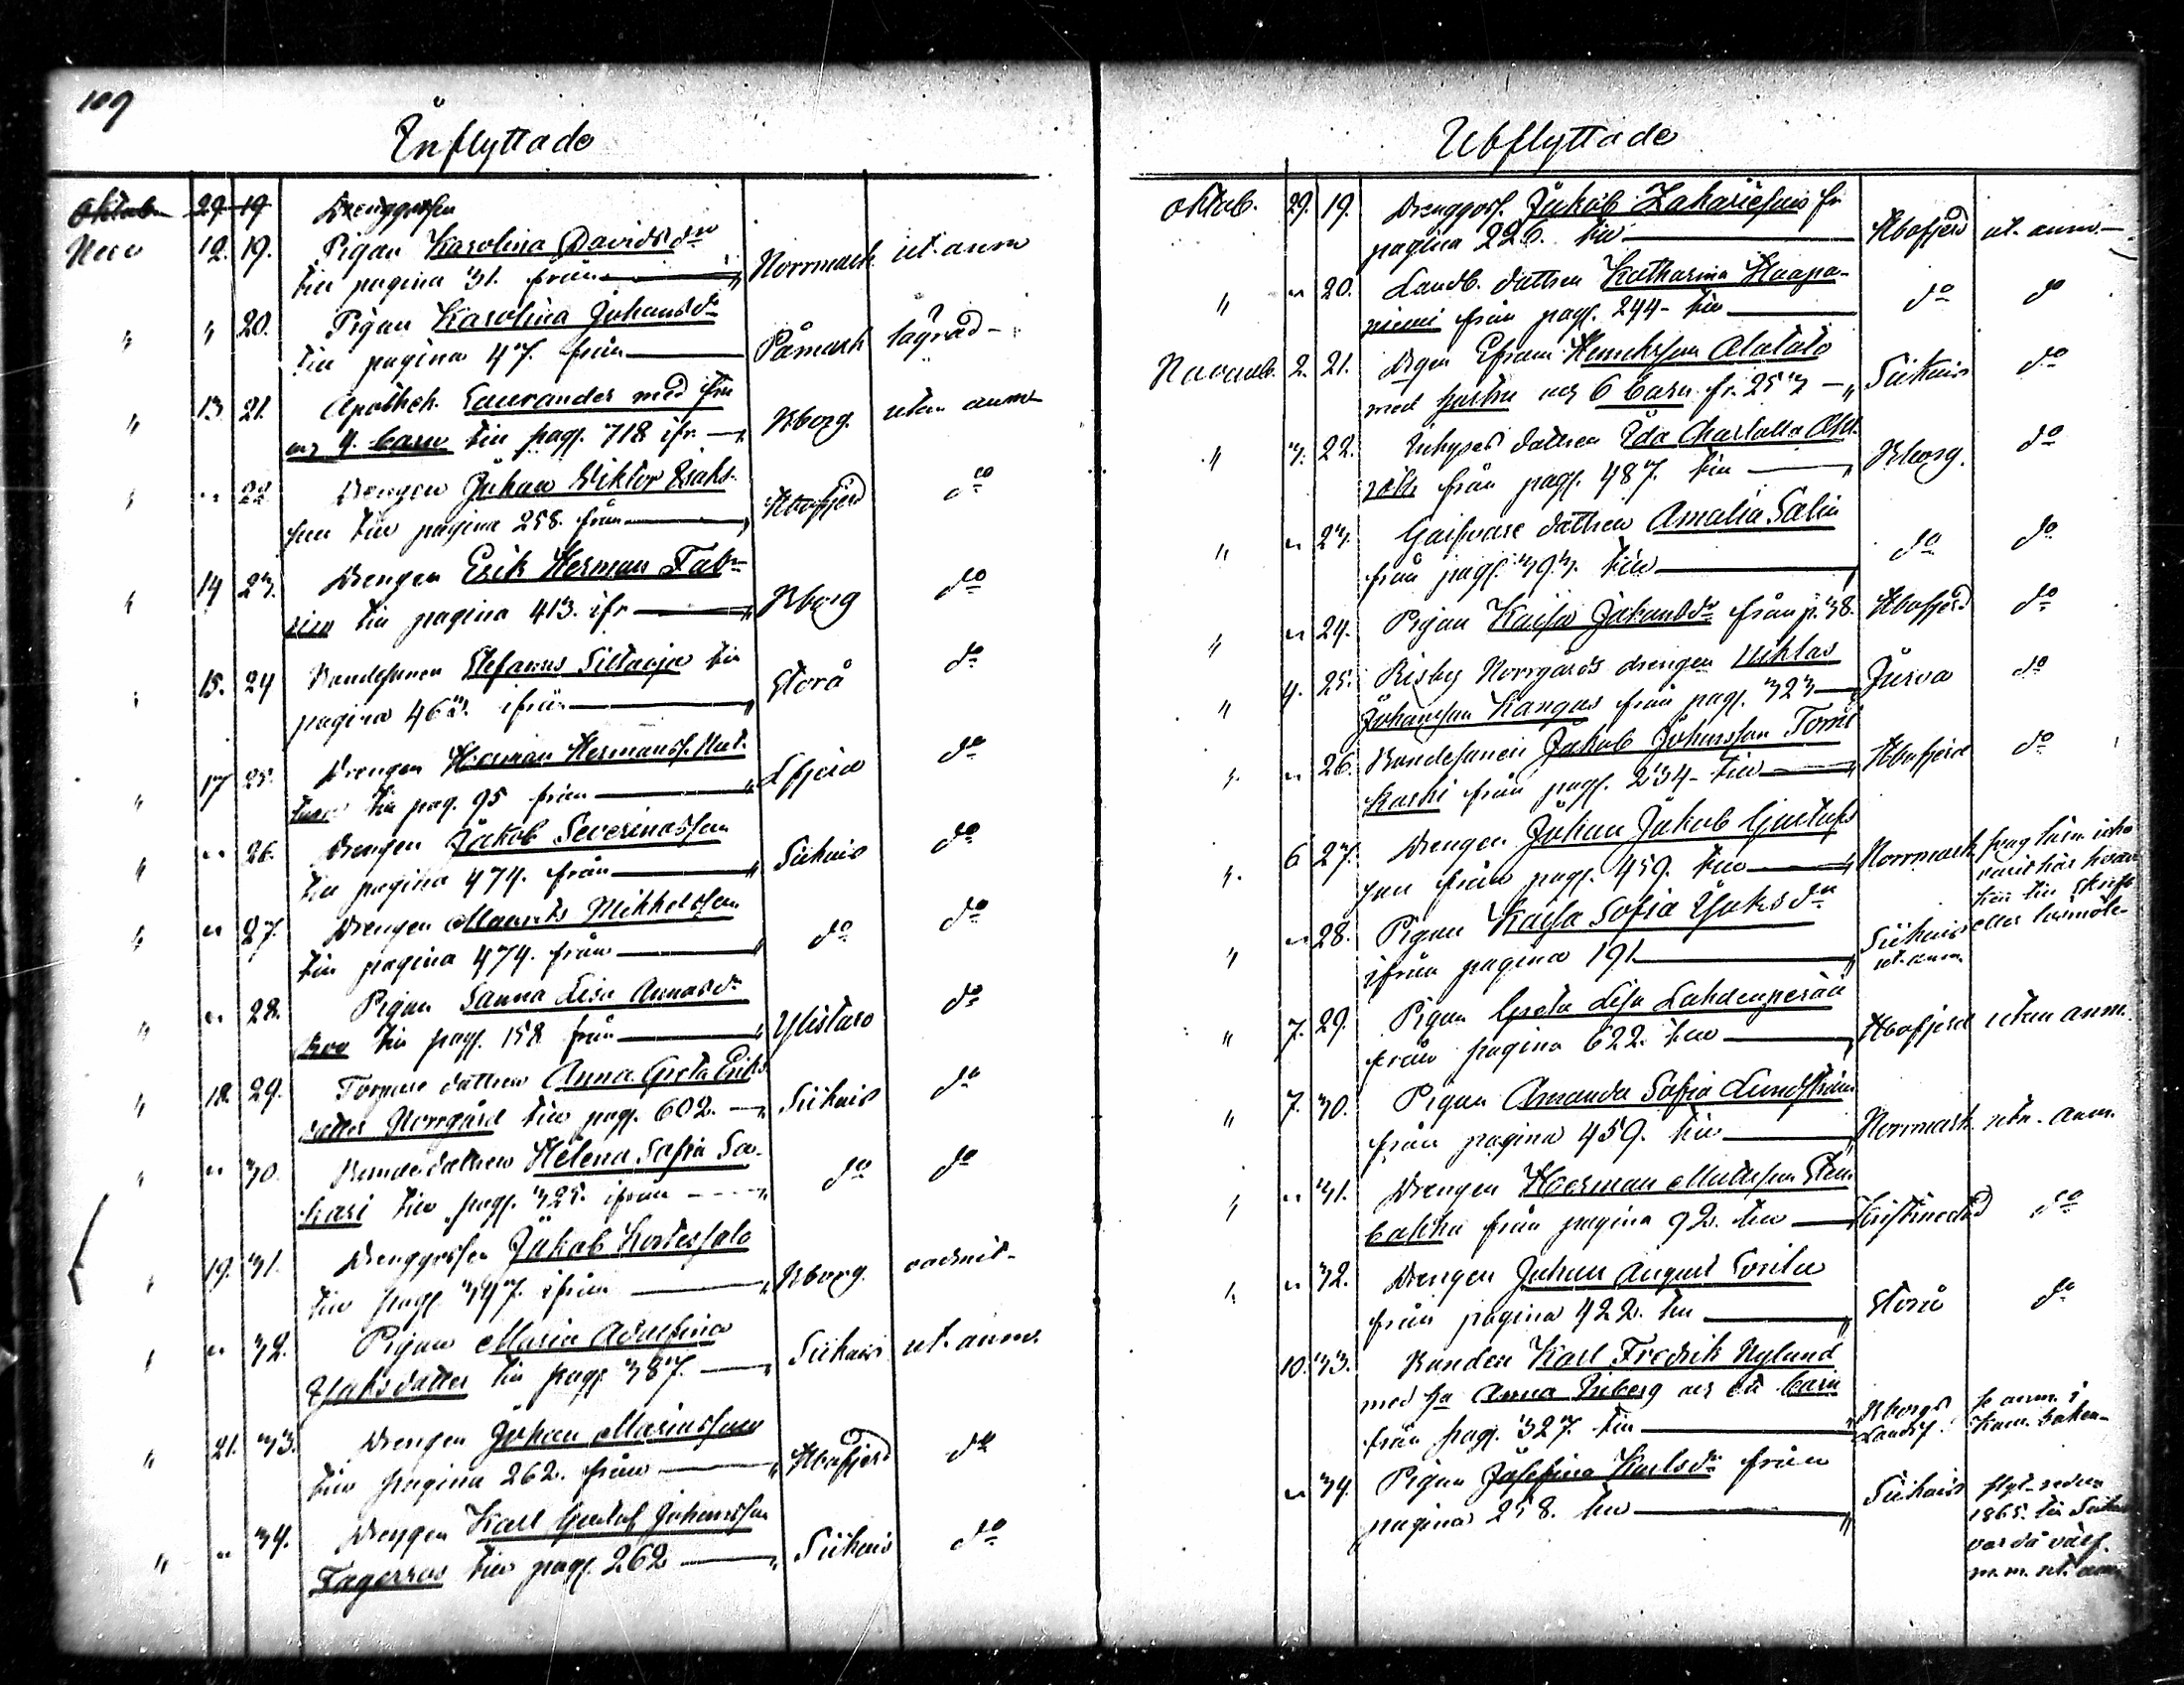 109
Inflyttade
Oktob. 29 19 Drenggossen
Nov 12. 19. Pigan Karolina Davidsdr
till pagina 31. från Norrmark ut. anm
" " 20. Pigan Karolina Johansdr
till pagina 47. från Påmark lagrad
" 13 21. Apothek. med fru
och 4. barn till pag. 718 ifr Bborg. utan anm
" " 22 Drengen Johan Wiktor Isaks-
son till pagina 258. från Hbofjerd do
" 14 23. Drengen Erik Herman Fab-
rin till pagina 413. ifr Bborg do
" 15. 24 Bondesonen Stefanus till
pagina 462. ifrån Storå do
" 17 25. Drengen Herman Hermanss.
till pag. 95 från Lfjerd do
" " 26. Drengen Jakob Severinasson
till pagina 474. från Siikais do
" " 27. Drengen Maurits Mikkelsson
till pagina 474. från do do
" " 28. Pigan Sanna Lisa Annasdr
till pag. 158 från Ylistaro do
" 18. 29. Torpare dottren Anna Greta Eriks
dotter Norrgård till pag. 602. Siikais do
" " 30. Bonde dottren Helena Sofia Sa-
kari till pag. 325. ifrån do do
" 19. 31. Drenggossen Jakob Kortessalo
till pag. 347. ifrån Bborg.
" " 32. Pigan Maria Adolfina
Isaksdotter till pag. 387. Siikais ut. anm.
" 21. 33. Drengen Johan Mariasson
till pagina 262. från Hbofjerd do
" " 34. Drengen Karl Gustaf Johansson
Fagerroos till pag. 262 Siikais do
Utflyttade
Oktob. 29. 19. Drenggoss. Jakob Zakariesson fr
pagina 226. till Hbofjerd ut. anm.
" " 20. Landb. dottren Katharina Haapa-
niemi från pag. 244- till do do
Novemb. 2. 21. Drgen Efraim Henriksson Alatalo
med hustru och 6 barn fr. 253 Siikais do
" 3. 22. Inhyses dottren Ida Charlotta
från pag. 487. till Bborg. do
" " 23. dottren Amalia Salin
från pag. 393. till do do
" " 24. Pigan Kaisa Johansdr från p. 38. Hbofjerd do
" 4. 25. Risby Norrgårds drengen Niklas
Johansson Kangas från pag. 323 Jurva do
" " 26. Bondesonen Jakob Johansson Tomi
koski från pag. 234- till Hbofjerd do
" 6 27. Drengen Johan Jakob Gustafs
son från pag. 459. till Norrmark
varit här
till skrift
eller
" " 28. Pigan Kajsa Sofia Isaksdr
ifrån pagina 191 Siikais
ut. anm.
" 7. 29. Pigan Greta Lisa Lahdenperää
från pagina 622. till Hbofjerd utan anm.
" 7. 30. Pigan Amanda Sofia Lundström
från pagina 459. till Norrmark utn. anm.
" " 31. Drengen Herman Mattsson Sten
backa från pagina 92. till Kristinestad do
" " 32. Drengen Johan August
från pagina 422. till Storå do
10. 33. Bonden Karl Fredrik Nylund
med hu Anna Friberg och ett barn
från pag. 327. till Bborgs
Landsf. se anm. i
kom. boken
" 34. Pigan Josefina Karlsdr från
pagina 258. till Siikais flyt. redan
1865. till
var då
m. m. ut. anm.